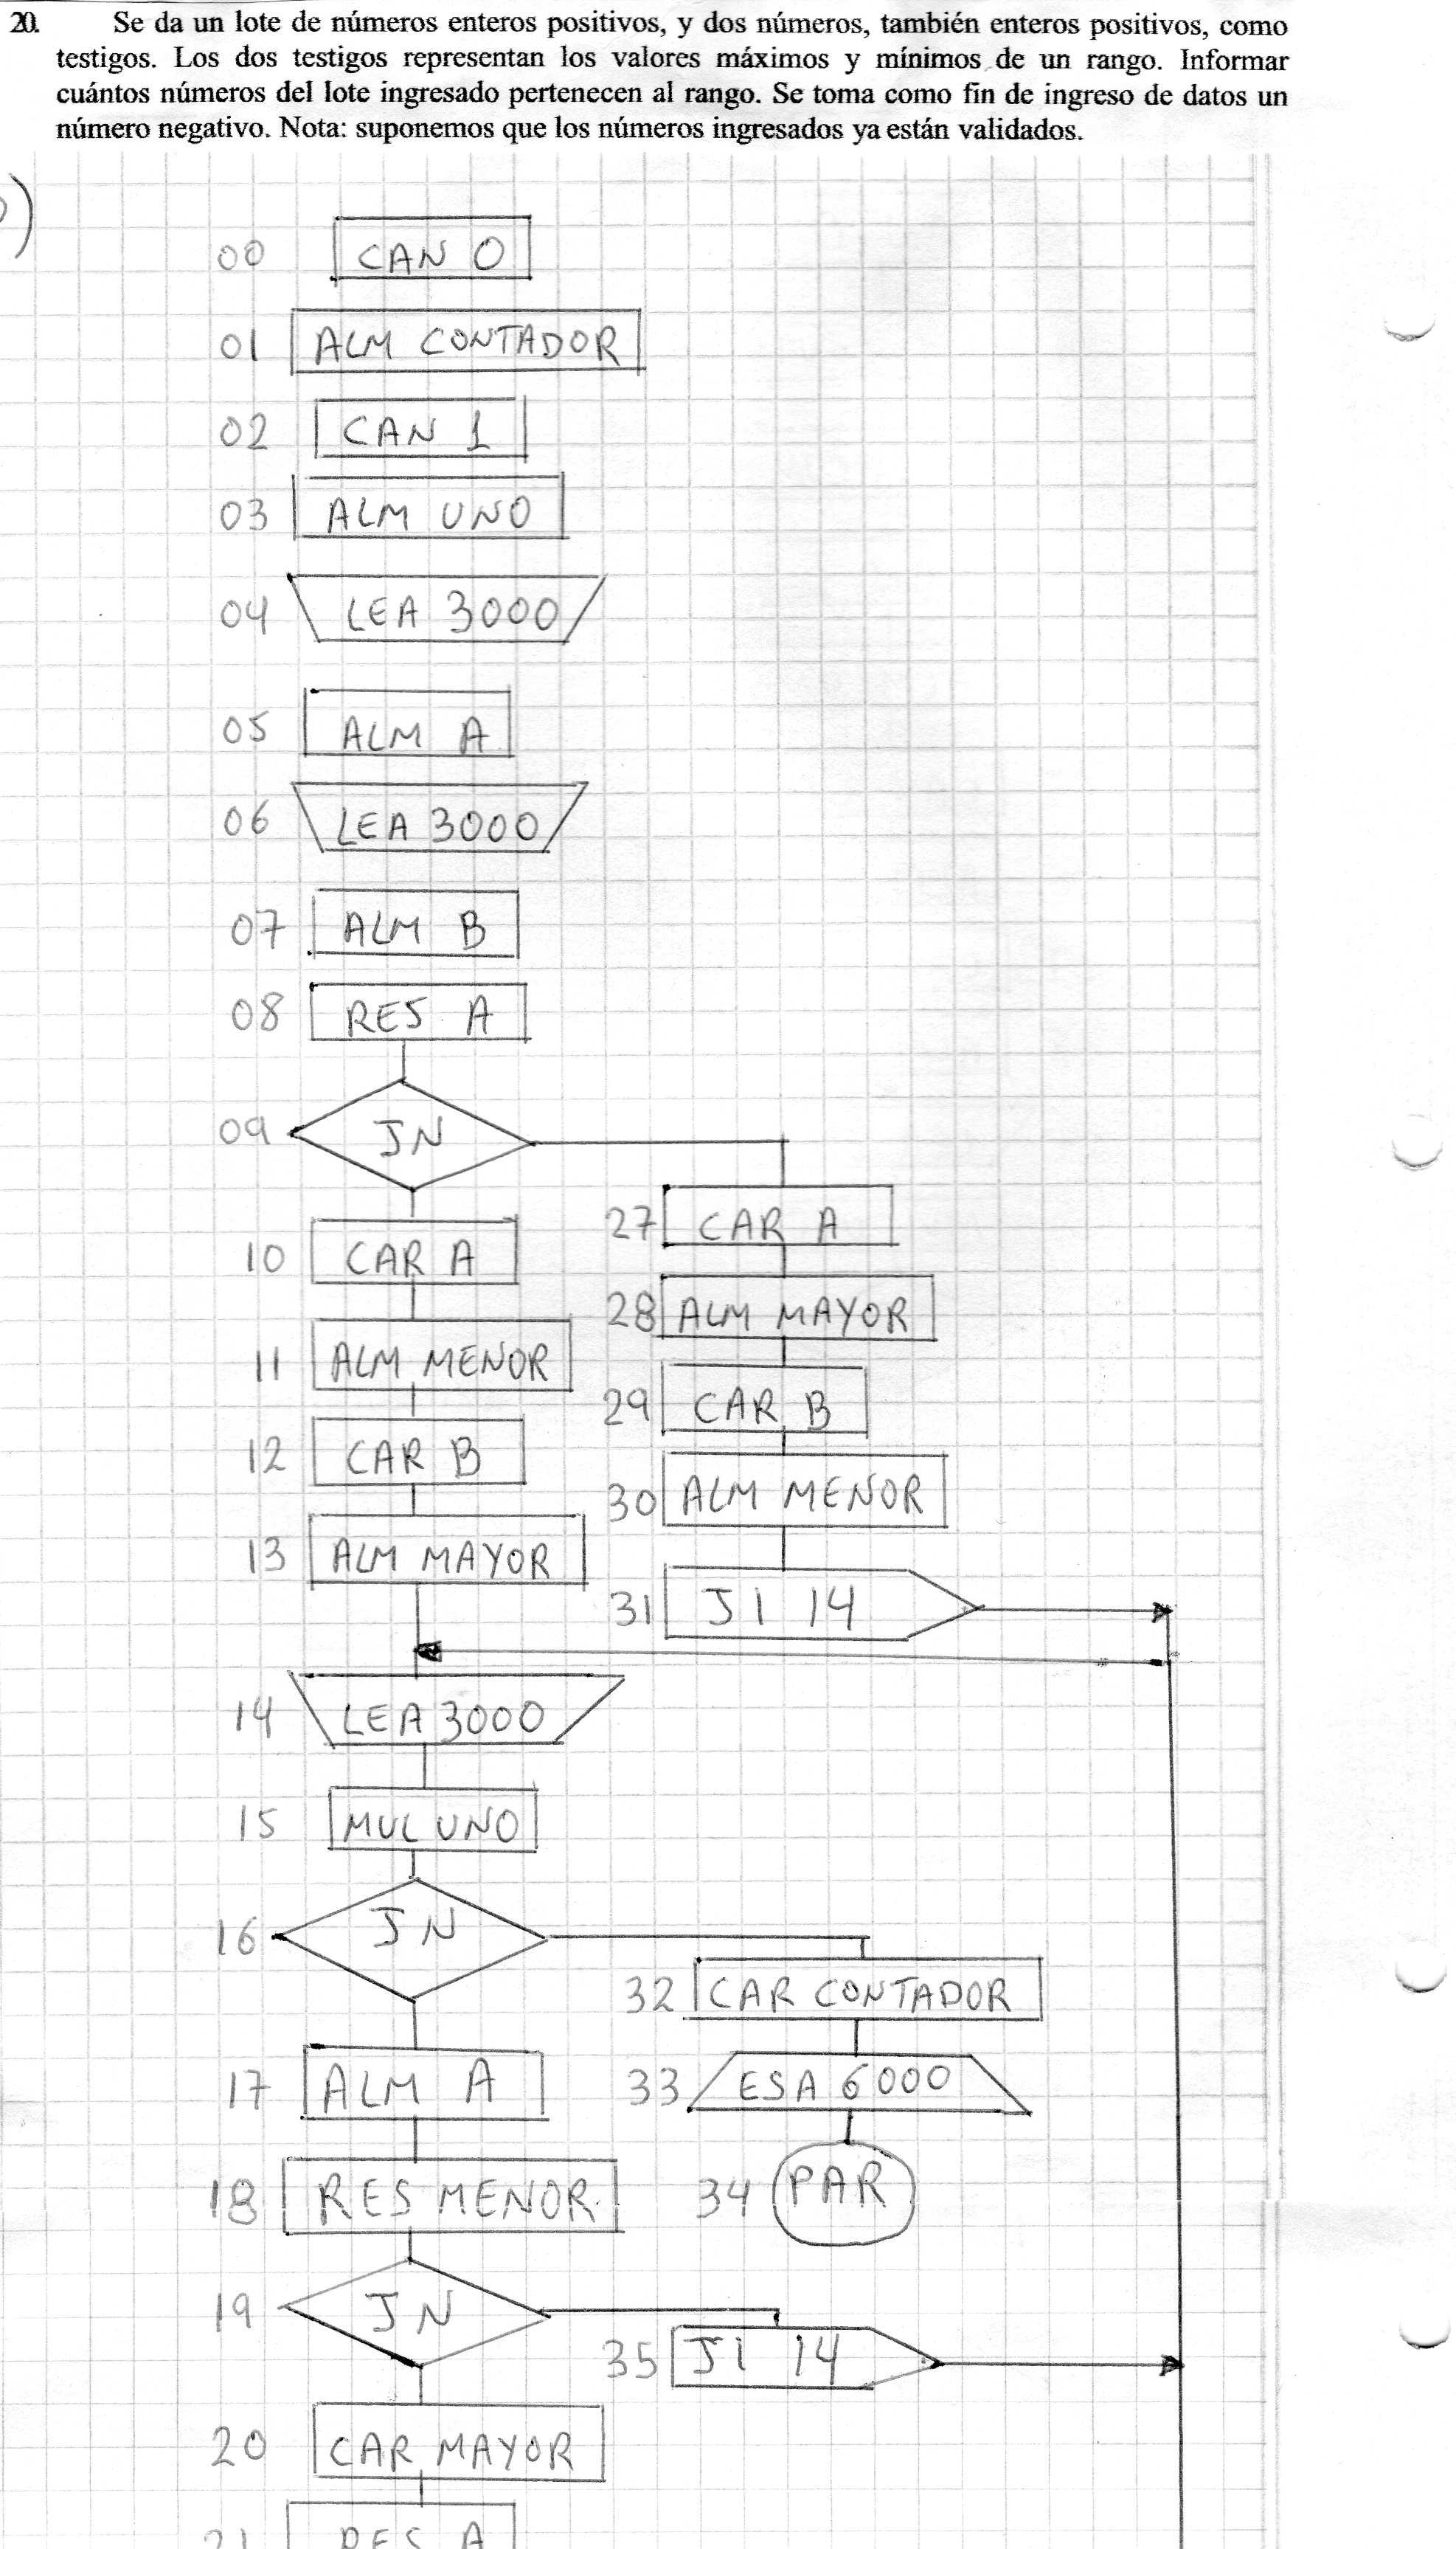 20. Se da un lote de números enteros positivos, y dos números, también enteros positivos, como
testigos. Los dos testigos representan los valores máximos y mínimos de un rango. Informar
cuántos números del lote ingresado pertenecen al rango. Se toma como fin de ingreso de datos un
número negativo. Nota: suponemos que los números ingresados ya están validados.
00 CAN 0
01 ALM CONTADOR
02 CAN 1
03 ALM UNO
04 LEA 3000
05 ALM A
06 LEA 3000
07 ALM B
08 RES A
09 JN
10 CAR A
11 ALM MENOR
12 CAR B
13 ALM MAYOR
27 CAR A
28 ALM MAYOR
29 CAR B
30 ALM MENOR
31 JI 14
14 LEA 3000
15 MUL UNO
16 JN
32 CAR CONTADOR
33 ESA 6000
34 PAR
17 ALM A
18 RES MENOR
19 JN
35 JI 14
20 CAR MAYOR
21 RES A